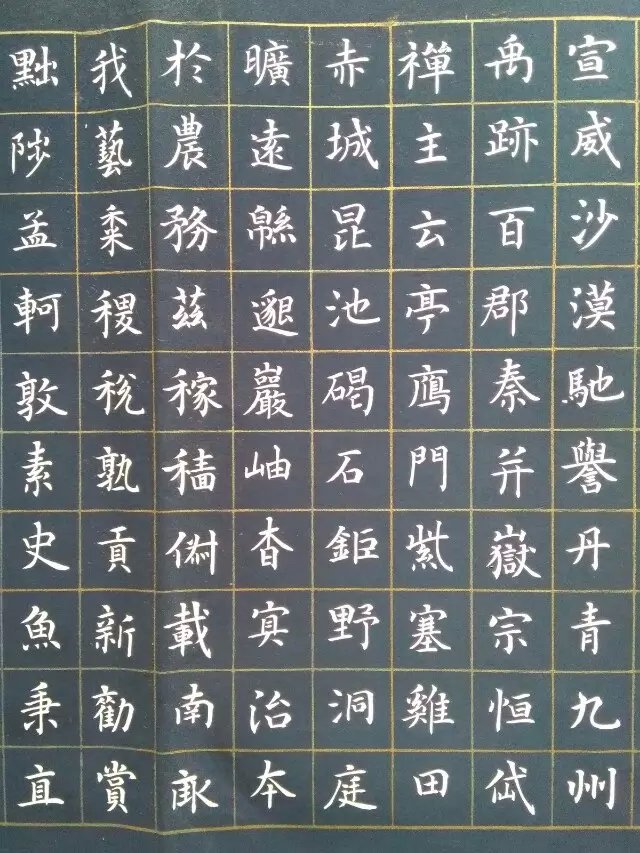 宣威沙漠馳譽丹青九州
禹跡百郡秦并嶽宗恒岱
禪主云亭鴈門紫塞雞田
赤城昆池碣石鉅野洞庭
曠遠緜邈巖岫杳冥治本
於農務茲稼穡俶載南畝
我藝黍稷稅熟貢新勸賞
黜陟孟軻敦素史魚秉直